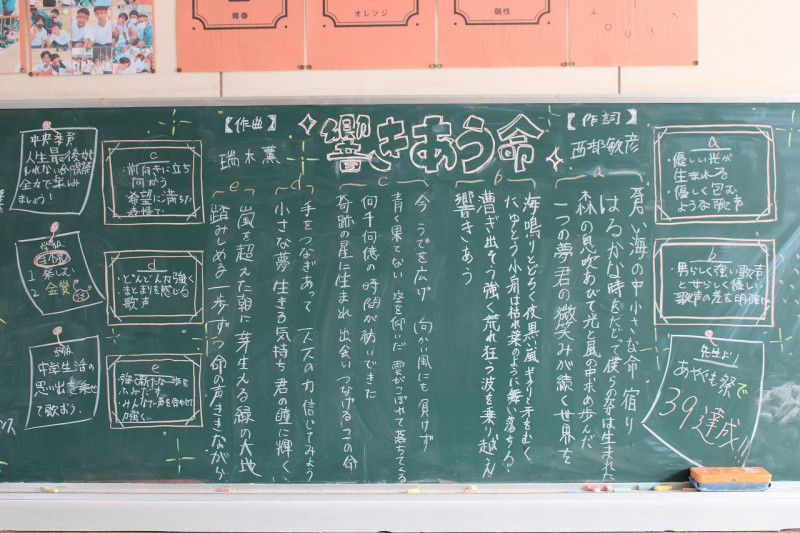 青春
オレンジ
個性
響きあう命
【作詞】
西部敏彦
【作曲】
瑞木薫
a
蒼い海の中小さな命宿り
はるかな時をたどって僕らの
森の息吹あびて光と風の中歩んだ
一つの夢君の微笑みが続く世界を
b
海鳴りとどろく夜黒い嵐キラリと牙をむく
たゆとう小舟は枯れ葉のように舞い落ちる?
漕ぎ出そう強く荒れ狂う波を乗り越え
響きあう
c
今うでを広げ向かい風にも負けず
青く果てない空を仰いだ雲がこぼれて落ちてくる
何千何億の時間が動いてきた
奇跡の星に生まれ出会いつながる二つの命
d
手をつなぎあって一人一人の力信じてみよう
小さな夢生きる気持ち君の瞳に輝く
e
嵐を超えた朝に芽生える緑の大地
踏みしめる一歩ずつ命の声ききながら
a
・優しい光が
生まれてる
・優しく包む
ような歌声
b
・男らしく強い歌声
と女らしく優しい
歌声の差を明確に
先生より
あやぐも祭で
39達成!!
c
・前向きに立ち
向かう
希望に満ちた
表情で
d
・どんどん力強く
まとまりを感じる
歌声
e
・強く新たな一歩を
ふみだす。
・みんなで声を合わせて
力強く。
人生最後かも
しれない
全力で楽しみ
ましょう!
1 楽しい
2 金賞
中学生活の
思い出を乗せ
て歌おう。